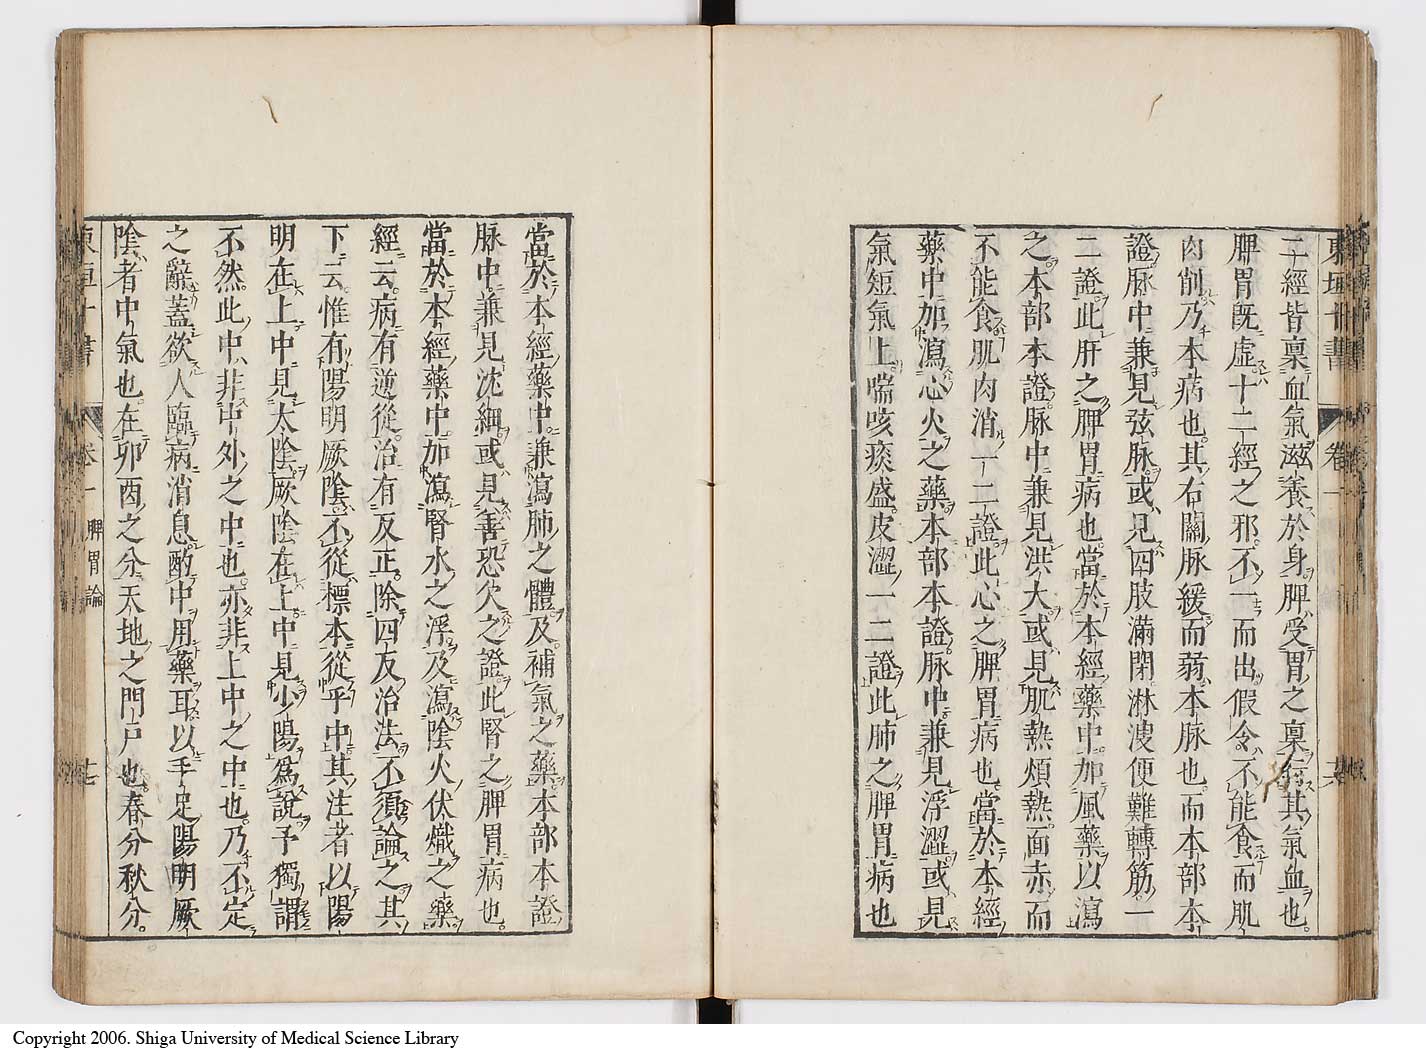 二經皆稟血氣滋養於身脾受胃之稟行其氣血也
脾胃既虛十二經之邪不一而出假令不能食而肌
肉削乃本病也其右關脉緩而弱本脉也而本部本
證脉中兼見弦脉或見四肢滿閉淋溲便難轉筋一
二證此肝之脾胃病也當於本經藥中加風藥以瀉
之本部本證脉中兼見洪大或見肌熱煩熱面赤而
不能食肌肉消一二證此心之脾胃病也當於本經
藥中加瀉心火之藥本部本證脉中兼見浮澀或見
氣短氣上喘咳痰盛皮澀一二證此肺之脾胃病也
當於本經藥中兼瀉肺之體及補氣之藥本部本證
脉中兼見沈細或見善恐欠之證此腎之脾胃病也
當於本經藥中加瀉腎水之浮及瀉陰火伏熾之藥
經云病有逆從治有反正除四反治法不須論之其
下云惟有陽明厥陰不從標本從乎中其注者以陽
明在上中見太陰厥陰在上中見少陽爲說予獨謂
不然此中非中外之中也亦非上中之中也乃不定
之辭蓋欲人臨病消息酌中用藥耳以手足陽明厥
陰者中氣也在卯酉之分天地之門戶也春分秋分
東垣十書 卷一 脾胃論 十七
Copyright 2006. Shiga University of Medical Science Library